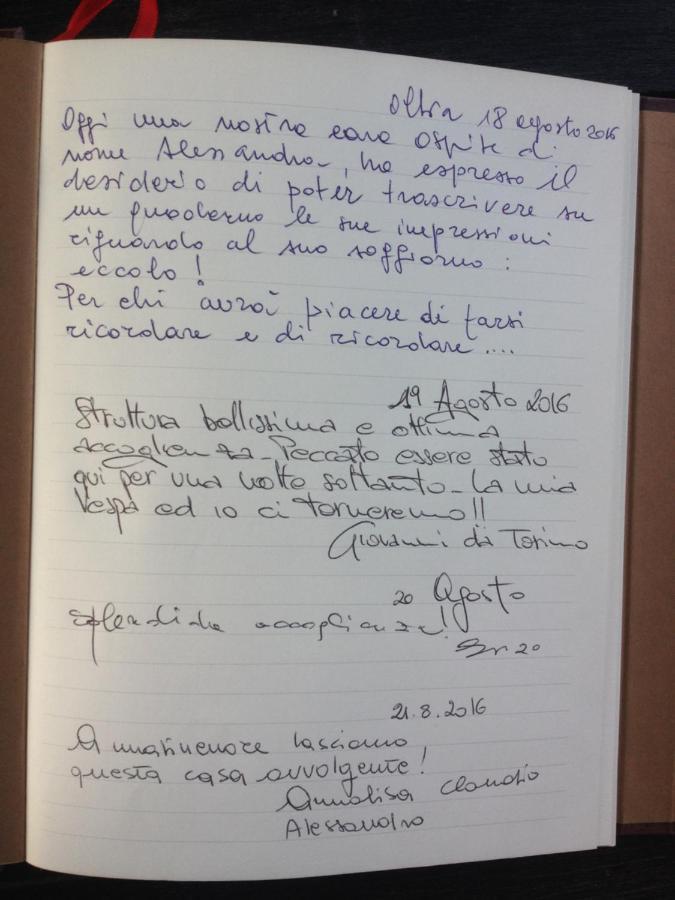 Oltra 18 agosto 2016
Oggi una nostra cara Ospite di
nome Alessandra, ha espresso il
desiderio di poter trascrivere su
un quaderno le sue impressioni
riguardo al suo soggiorno :
eccolo !
Per chi avrà piacere di farsi
ricordare e di ricordare ....
19 Agosto 2016
Struttura bellissima e ottima
accoglienza. Peccato essere stato
qui per una volta soltanto. La mia
Vespa ed io ci torneremo!!
Giovanni da Torino
20 Agosto
Splendida accoglienza!
21.8.2016
A malincuore lasciamo
questa casa avvolgente!
Annalisa Claudio
Alessandro